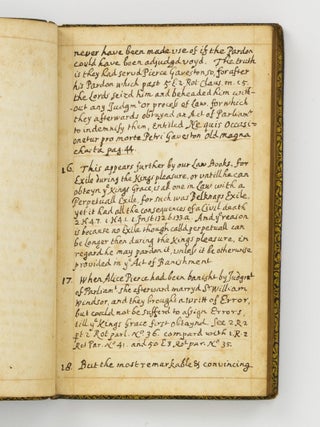 never have been made use of if the Pardon
could have been adjudgd voyd. The truth
is they had servd Pierce Gaveston so, for after
his Pardon which past 5 E 2 Rot claus m. 15.
the Lords seizd him and beheaded him with-
out any Judgmt or process of law, for which
they afterwards obtayned an Act of Parliamt
to indemnify them, Entitled Ne quis Occasi-
onetur pro morte Petri Gaveston old magna
charta pag 44.
16. This appears further by our Law Books. for
Exile during the Kings pleasure, or untill he can
obteyn ye Kings Grace, is all one in Law with a
Perpetuall Exile. for such was Belknaps Exile,
yet it had all the consequences of a Civil death
2 H 4 7. 1 H 4 1. 1 Inst 132 b 133 a. And ye reason
is because no Exile though calld perpetuall can
be longer then during the Kings pleasure, in
regard he may pardon it, unless it be otherwise
provided in ye Act of Banishment
17. When Alice Pierce had been banisht by Judgmt
of Parliamt she afterward marryd Sr William
Windsor, and they brought a Writt of Error,
but could not be sufferd to assign Errors,
till ye Kings Grace first obtaynd. See 2 R 2
pt 2 Rot parl. No 36. compard with 1 R 2
Rot Par. No 41. and 50 E 3, Rot par. No 35.
18. But the most remarkable & convincing